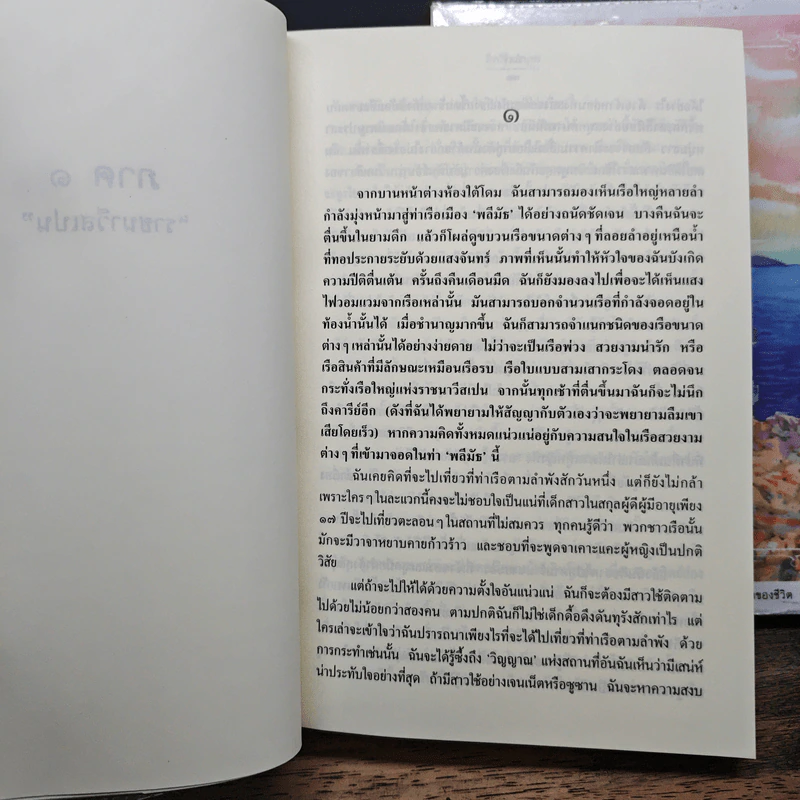 ภาค ๑
“ราชนาวีสเปน”
๑
จากบานหน้าต่างห้องใต้โดม ฉันสามารถมองเห็นเรือใหญ่หลายลำ
กำลังมุ่งหน้ามาสู่ท่าเรือเมือง ‘พลีมัธ’ ได้อย่างถนัดชัดเจน บางคืนฉันจะ
ตื่นขึ้นในยามดึก แล้วก็โผล่ดูขบวนเรือขนาดต่าง ๆ ที่ลอยลำอยู่เหนือน้ำ
ที่ทอประกายระยับด้วยแสงจันทร์ ภาพที่เห็นนั้นทำให้หัวใจของฉันบังเกิด
ความปีติตื่นเต้น ครั้นถึงคืนเดือนมืด ฉันก็ยังมองลงไปเพื่อจะได้เห็นแสง
ไฟวอมแวมจากเรือเหล่านั้น มันสามารถบอกจำนวนเรือที่กำลังจอดอยู่ใน
ท้องน้ำนั้นได้ เมื่อชำนาญมากขึ้น ฉันก็สามารถจำแนกชนิดของเรือขนาด
ต่าง ๆ เหล่านั้นได้อย่างง่ายดาย ไม่ว่าจะเป็นเรือพ่วง สวยงามน่ารัก หรือ
เรือสินค้าที่มีลักษณะเหมือนเรือรบ เรือใบแบบสามเสากระโดง ตลอดจน
กระทั่งเรือใหญ่แห่งราชนาวีสเปน จากนั้นทุกเช้าที่ตื่นขึ้นมาฉันก็จะไม่นึก
ถึงคารีย์อีก (ดังที่ฉันได้พยายามให้สัญญากับตัวเองว่าจะพยายามลืมเขา
เสียโดยเร็ว) หากความคิดทั้งหมดแน่วแน่อยู่กับความสนใจในเรือสวยงาม
ต่าง ๆ ที่เข้ามาจอดในท่า ‘พลีมัธ’ นี้
ฉันเคยคิดที่จะไปเที่ยวที่ท่าเรือตามลำพังสักวันหนึ่ง แต่ก็ยังไม่กล้า
เพราะใคร ๆ ในละแวกนี้คงจะไม่ชอบใจเป็นแน่ที่เด็กสาวในสกุลผู้ดีผู้มีอายุเพียง
๑๗ ปีจะไปเที่ยวตะลอน ๆ ในสถานที่ไม่สมควร ทุกคนรู้ดีว่า พวกชาวเรือนั้น
มักจะมีวาจาหยาบคายก้าวร้าว และชอบที่จะพูดจาเคาะแคะผู้หญิงเป็นปกติ
วิสัย
แต่ถ้าจะไปให้ได้ด้วยความตั้งใจอันแน่วแน่ ฉันก็จะต้องมีสาวใช้ติดตาม
ไปด้วยไม่น้อยกว่าสองคน ตามปกติฉันก็ไม่ใช่เด็กดื้อดึงดันทุรังสักเท่าไร แต่
ใครเล่าจะเข้าใจว่าฉันปรารถนาเพียงไรที่จะได้ไปเที่ยวที่ท่าเรือตามลำพัง ด้วย
การกระทำเช่นนั้น ฉันจะได้รู้ซึ้งถึง ‘วิญญาณ’ แห่งสถานที่อันฉันเห็นว่ามีเสน่ห์
น่าประทับใจอย่างที่สุด ถ้ามีสาวใช้อย่างเจนเน็ตหรือซูซาน ฉันจะหาความสงบ
ของชีวิต